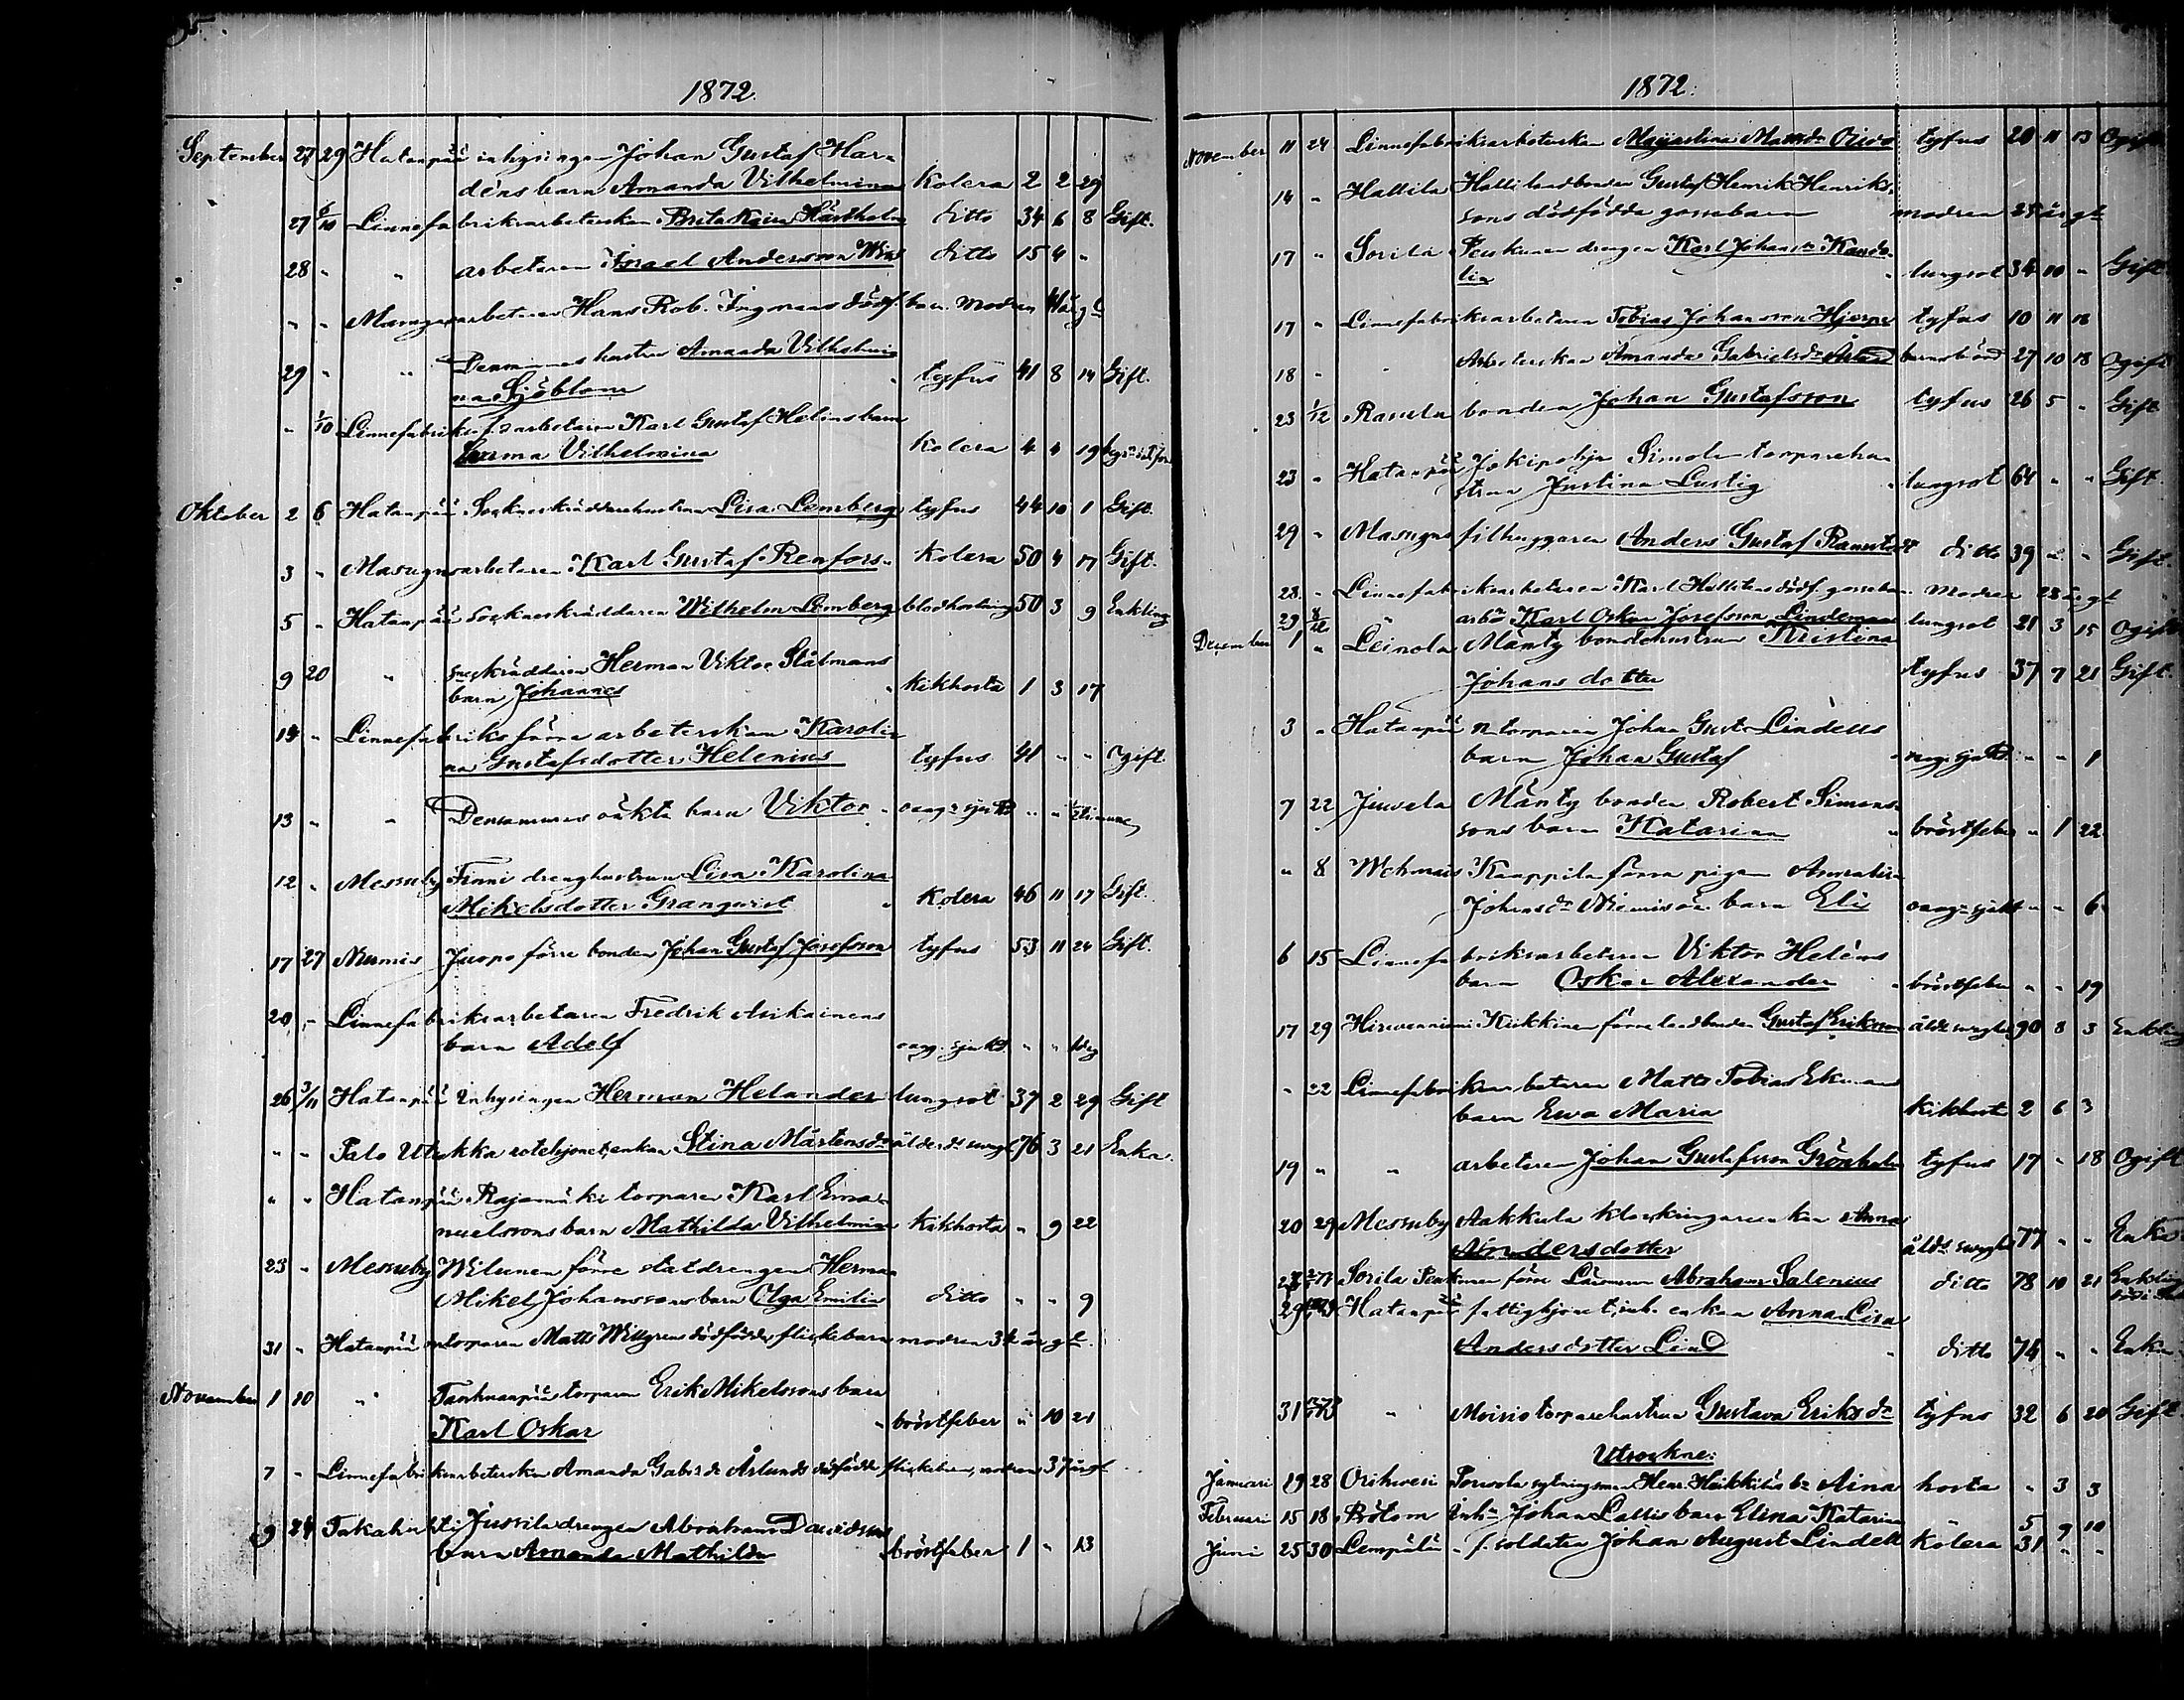 1872.
September 27 29 Hatanpää inhysingen Johan Gustaf Har-
déns barn Amanda Vilhelmina Kolera 2 2 29
27 6/10 Linnefabriksarbeterskan Brita Kajsa ditto 34 6 8 Gift.
28 " " arbetaren Israel Andersson ditto 15 4 "
" " Masugnsarbetaren Hans Rob. Ingmans dödf. barn. Modren
29 " " Densammes hustru Amanda Vilhelmi-
na Sjöblom " tyfus 41 8 14 Gift.
" 1/10 Linnefabriks f.d. arbetaren Karl Gustaf Helins barn
Vilhelmina Kolera 4 4 19
Oktober 2 6 Hatanpää Sockneskräddarehustrun Lisa Lemberg tyfus 44 10 1 Gift.
3 " Masugnsarbetaren Karl Gustaf Renfors " Kolera 50 4 17 Gift.
5 " Hatanpää sockneskräddaren Wilhelm Lemberg blodhostning 50 3 9 Enkling
9 20 " skräddaren Herman Viktor Stålmans
barn Johannes " kikhosta 1 3 17
14 " Linnefabriks förra arbeterskan Karoli-
na Gustafsdotter Helenius tyfus 41 " " Ogift.
13 " " Densammas oäkta barn Viktor " " "
12 " Messuby Finni drenghustrun Lisa Karolina
Mikelsdotter Granqvist " Kolera 46 11 17 Gift.
17 27 Niemis Juopo förre bonden Johan Gustaf Josefsson tyfus 53 11 24 Gift.
20 " Linnefabriksarbetaren Fredrik Asikainens
barn Adolf " " 1 dag
26 3/11 Hatanpää Inhysingen Herman Helander lungsot 37 2 29 Gift
" " Palo Utukka rotehjonet, enkan Stina Mårtensdr 76 3 21 Enka.
" " Hatanpää Rajamäki torparen Karl Ema-
nuelssons barn Mathilda Vilhelmina kikhosta " 9 22
23 " Messuby Wilunen förre statdrengen Herman
Mikel Johanssons barn Olga Emilia ditto " " 9
31 " Hatanpää torparen Matts Willgrens dödfödda flickebarn modren 34 år gl.
November 1 10 " torparen Erik Mikelssons barn
Karl Oskar " bröstfeber " 10 21
7 " Linnefabriksarbeterskan Amanda Gabr.dr Åslunds dödfödda flickebarn, modren 37 år gl
9 24 Takahuhti Jussila drengen Abraham Davidssons
barn Amanda Mathilda bröstfeber 1 " 13
1872.
November 11 24 Linnefabriksarbeterskan Majastina Mattsdr tyfus 20 11 13 Ogift
14 " Hallila Halli landbonden Gustaf Henrik Henriks-
sons dödfödda gossebarn modren 25 år gl
17 " Sorila Penkunen drengen Karl Johansson
" lungsot 34 10 " Gift
17 " Linnefabriksarbetaren Tobias Johansson Hjerpe tyfus 10 11 16
18 " " Arbeterskan Amanda Gabrielsdr barnsbörd 27 10 18 Ogift
23 1/12 Ranula bonden Johan Gustafsson tyfus 26 5 " Gift
23 " Hatanpää Jokipohja Simola torparehu-
strun Justina Lustig " lungsot 64 " " Gift.
29 " Masugns filhuggaren Anders Gustaf ditto 39 " " Gift.
23 " Linnefabriksarbetaren Karl Hallstens dödf. gossebarn. Modren 23 år gl
29 8/12 " arb. Karl Oskar Josefsson Lindeman lungsot 21 3 15 Ogift
December 1 " Leinola Mänty bondehustrun Kristina
Johansdotter tyfus 37 7 21 Gift.
3 " Hatanpää torparen Johan Gust. Lindells
barn Johan Gustaf " " " 1
7 22 Juvela Mänty bonden Robert Simons-
sons barn Katarina " bröstfeber " 1 22
" 8 Wehmais Kaappila förra pigan Annastina
Johansdr barn Eli " " 6
6 15 Linnefabriksarbetaren Viktor Heléns
barn Oskar Alexander " bröstfeber " " 19
17 29 Hirwenniemi Kiikkinen förre landbonden Gustaf Eriksson 90 8 3 Enkling
" 22 Linnefabriksarbetaren Matts Tobias Ekmans
barn Ewa Maria kikhosta 2 6 3
19 " " arbetaren Johan Gustafsson Grönholm tyfus 17 " 18 Ogift
20 29 Messuby Aakkula klockringareenkan Anna
Andersdotter 77 " " Enka
Sorila Penkunen förre Länsman Abraham Salenius ditto 78 10 21 Enkling
29 Hatanpää fattighjonet, inh. enkan Anna Lisa
Andersdotter Lind " ditto 74 " " Enka
31 " Moisio torparehustrun Gustava Eriksdr tyfus 32 6 20 Gift
Utsockne:
Januari 19 28 Orihvesi sytningsman Henr. Heikkiläs bn Aina hosta " 3 3
Februari 15 18 Inh. Johan Lallis barn Elina Katarina 5 9 10
Juni 25 30 Lempälä f. soldaten Johan August Lindell Kolera 31 " "